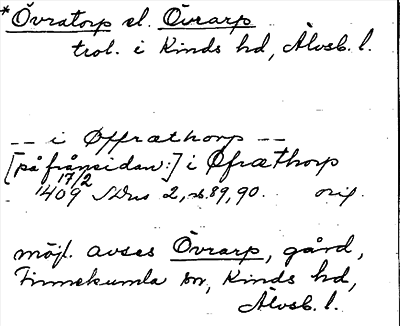 *Övratorp el. Övrarp
trol. i Kinds hd, Älvsb. l.
-- i Øffræthorp --
[på frånsidan:] i Øfræthorp
17/2
1409 SDns 2, s. 89, 90. orig.
möjl. avses Övrarp, gård,
Finnekumla sn, Kinds hd,
Älvsb. l.